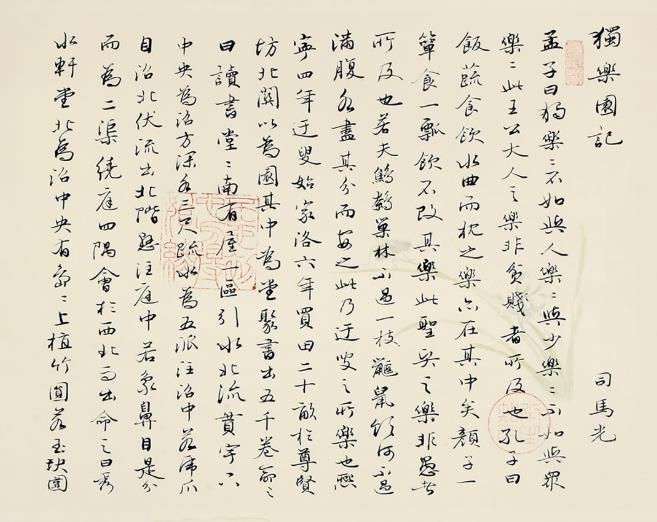 獨樂園記
司馬光
孟子曰獨樂樂不如與人樂樂與少樂樂不如與眾
樂樂此王公大人之樂非貧賤者所及也孔子曰
飯蔬食飲水曲而枕之樂亦在其中矣顏子一
簞食一瓢飲不改其樂此聖賢之樂非愚者
所及也若夫鷦鷯巢林不過一枝鼴鼠飲河不過
滿腹各盡其分而安之此乃迂叟之所樂也熙
寧四年迂叟始家洛六年買田二十畝於尊賢
坊北關以為園其中為堂聚書出五千卷命之
曰讀書堂堂南有屋一區引水北流貫宇下
中央為沼方深各三尺疏水為五派注沼中若虎爪
自沼北伏流出北階懸注庭中若象鼻自是分
而為二渠繞庭四隅會於西北而出命之曰弄
水軒堂北為沼中央有島島上植竹圓若玉玦圍